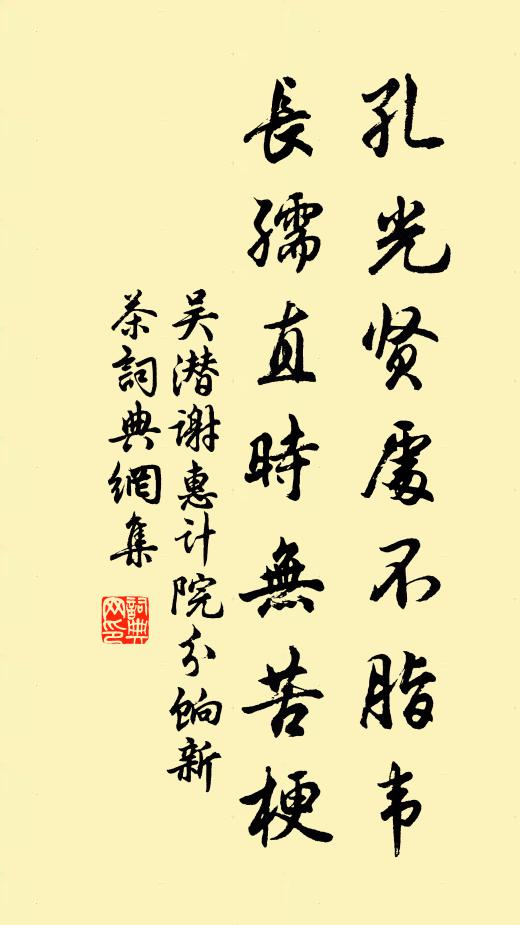 孔光贤處不脂韦
長孺直時無苦梗
吴潜谢惠计院分餉新
茶詞典網集
詞典
网印